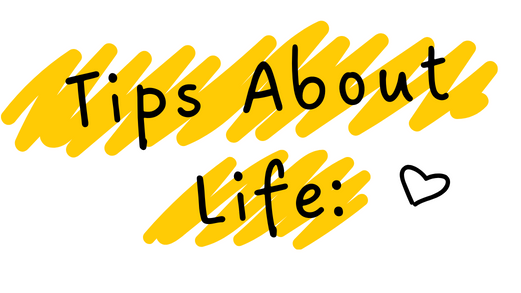 Tips About
Life: